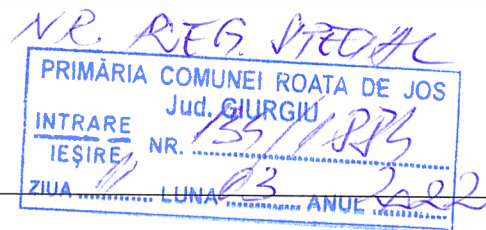 NR. REG. SPECIAL
PRIMĂRIA COMUNEI ROATA DE JOS
Jud. GIURGIU
INTRARE
IEȘIRE NR. 135/1884
ZIUA 11 LUNA 03 ANUL 2022